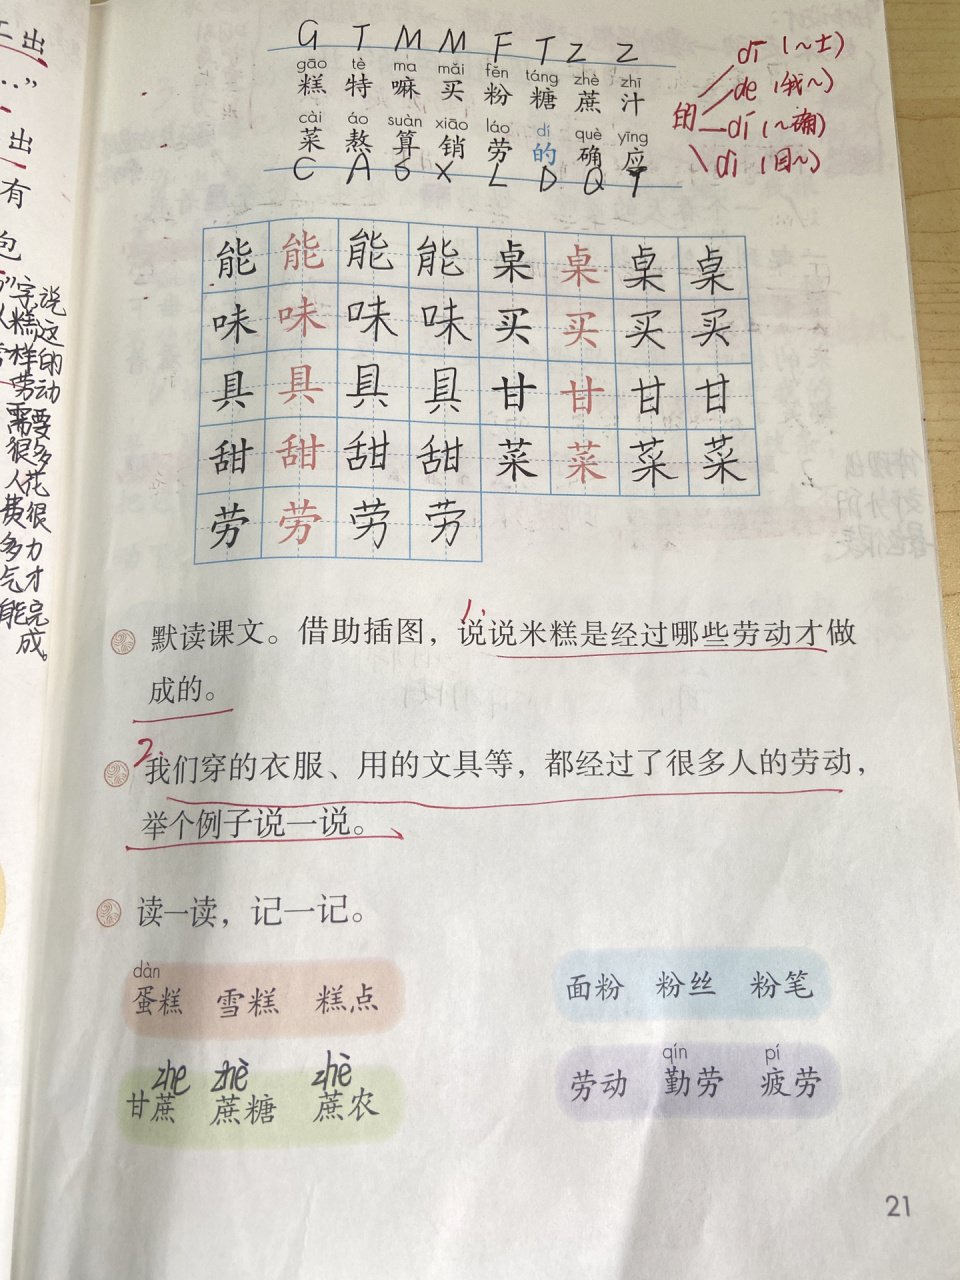 工出
…”
出
有
包
G T M M F T Z Z
gāo tè ma mǎi fěn táng zhè zhī
糕 特 嘛 买 粉 糖 蔗 汁
cài áo suàn xiāo láo dí què yīng
菜 熬 算 销 劳 的 确 应
C A S X L D Q Y
的
dī (～士)
de (我～)
dí (～确)
dì (目～)
能 能 能 能 桌 桌 桌 桌
味 味 味 味 买 买 买 买
具 具 具 具 甘 甘 甘 甘
甜 甜 甜 甜 菜 菜 菜 菜
劳 劳 劳 劳
字说
糕这
样的
劳动
需要
很多
人花
费很
多力
气才
能完
成。
1.
默读课文。借助插图，说说米糕是经过哪些劳动才做
成的。
2.
我们穿的衣服、用的文具等，都经过了很多人的劳动，
举个例子说一说。
读一读，记一记。
dàn
蛋糕 雪糕 糕点
面粉 粉丝 粉笔
zhe zhè zhè
甘蔗 蔗糖 蔗农
qín pí
劳动 勤劳 疲劳
21